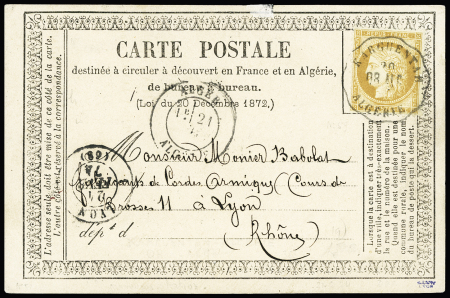 CARTE POSTALE
destinée à circuler à découvert en France et en Algérie,
de bureau à bureau.
(Loi du 20 Décembre 1872.)
L'adresse seule doit être mise de ce côté de la carte.
L'autre côté est réservé à la correspondance.
ALGER
21
ALGÉRIE
20
ALGERIE
LYON
(68)
Monsieur Monier Babolat
Cours de
Brosses 11 à Lyon
(Rhône)
Lorsque la carte est à destination
d'une ville, indiquer très-exactement
la rue et le numéro de la maison.
Quand elle est destinée pour une
commune rurale, indiquer le nom
du bureau de poste qui la dessert.